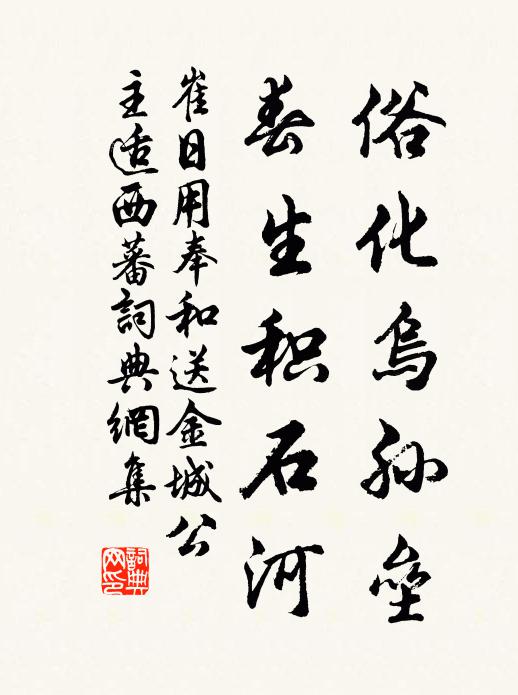 俗化烏孙垒
春生积石河
崔日用奉和送金城公
主适西蕃詞典網集
詞典网印